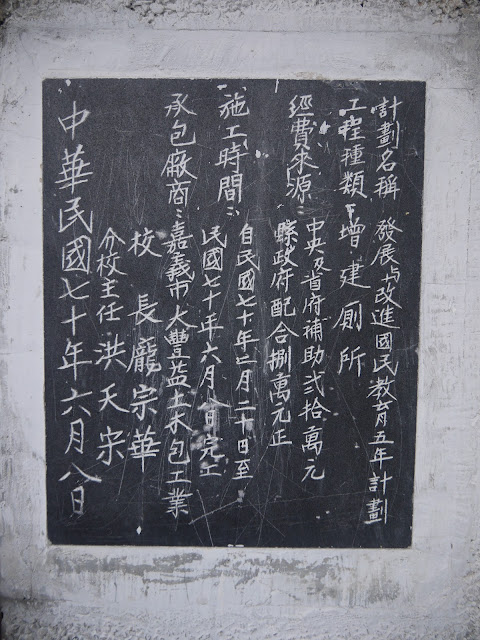 計劃名稱 發展與改進國民教育五年計劃
工程種類：增建厠所
經費來源：中央及省府補助貳拾萬元
縣政府配合捌萬元正
施工時間：自民國七十年二月二十日至
民國七十年六月八日完工
承包廠商：嘉義市大豐益土木包工業
校長龐宗華
分校主任洪天宋
中華民國七十年六月八日